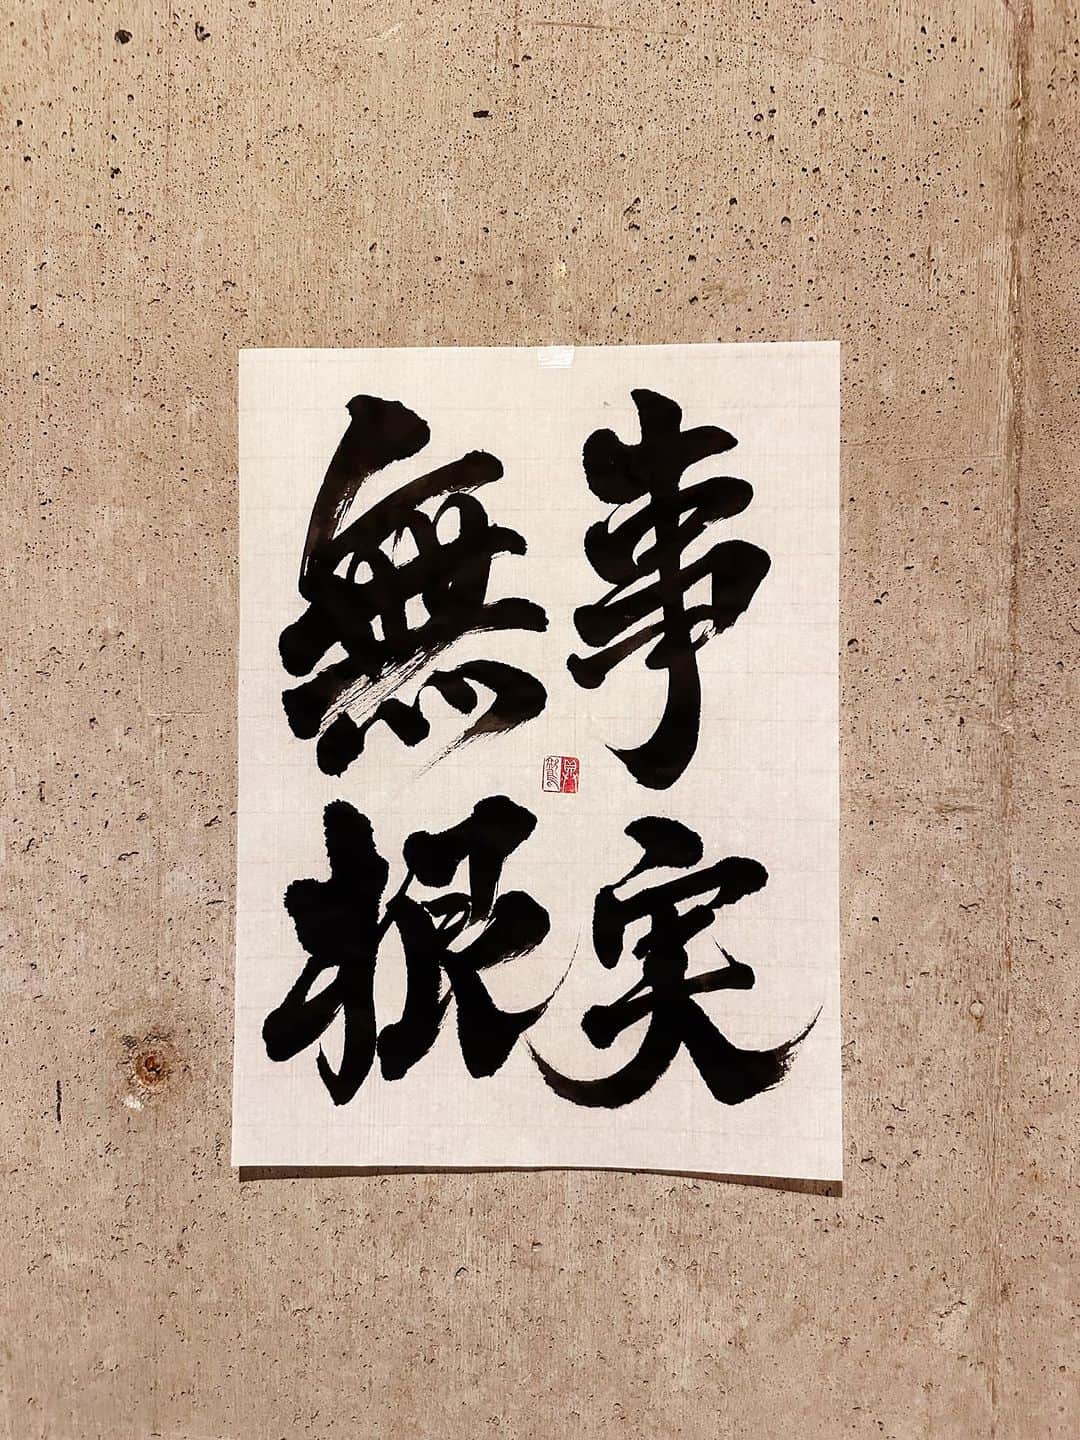 事実
無根